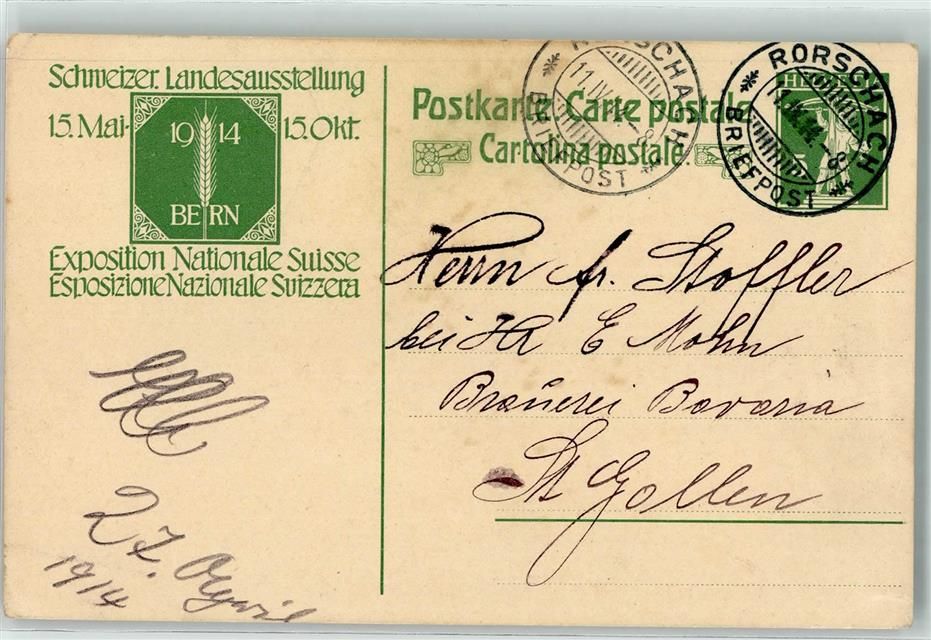 Schweizer. Landesausstellung
15. Mai - 15. Okt.
1914
BERN
Exposition Nationale Suisse
Esposizione Nazionale Svizzera
Postkarte. Carte postale
Cartolina postale
RORSCHACH
BRIEFPOST
RORSCHACH
11.IV.14.-8
BRIEFPOST
Herrn Fr. Stoffler
bei Hr E Mohn
Brauerei Bavaria
St Gallen
27. April
1914